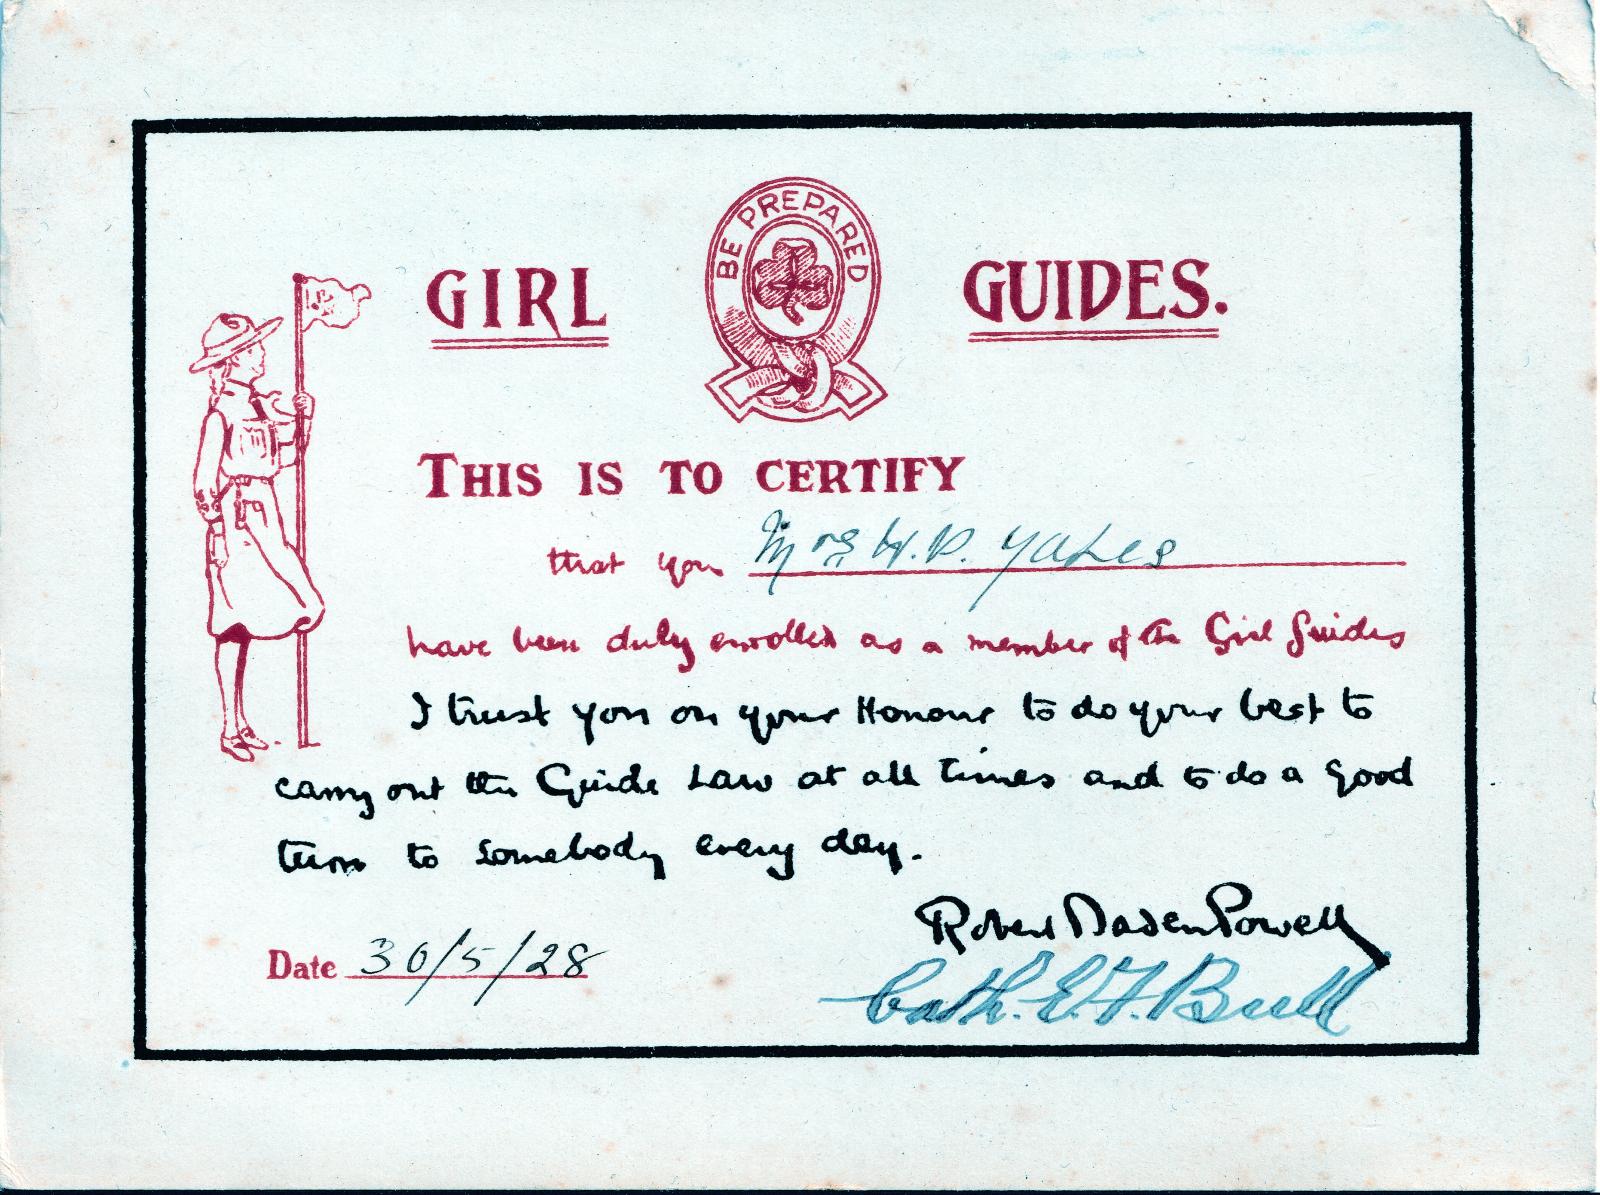 BE PREPARED
GIRL GUIDES.
THIS IS TO CERTIFY
that you Mrs H. P. Yates
have been duly enrolled as a member of the Girl Guides
I trust you on your Honour to do your best to
carry out the Guide Law at all times and to do a good
turn to somebody every day.
Robert Baden Powell
Date 30/5/28
Cath. E. F. Bull